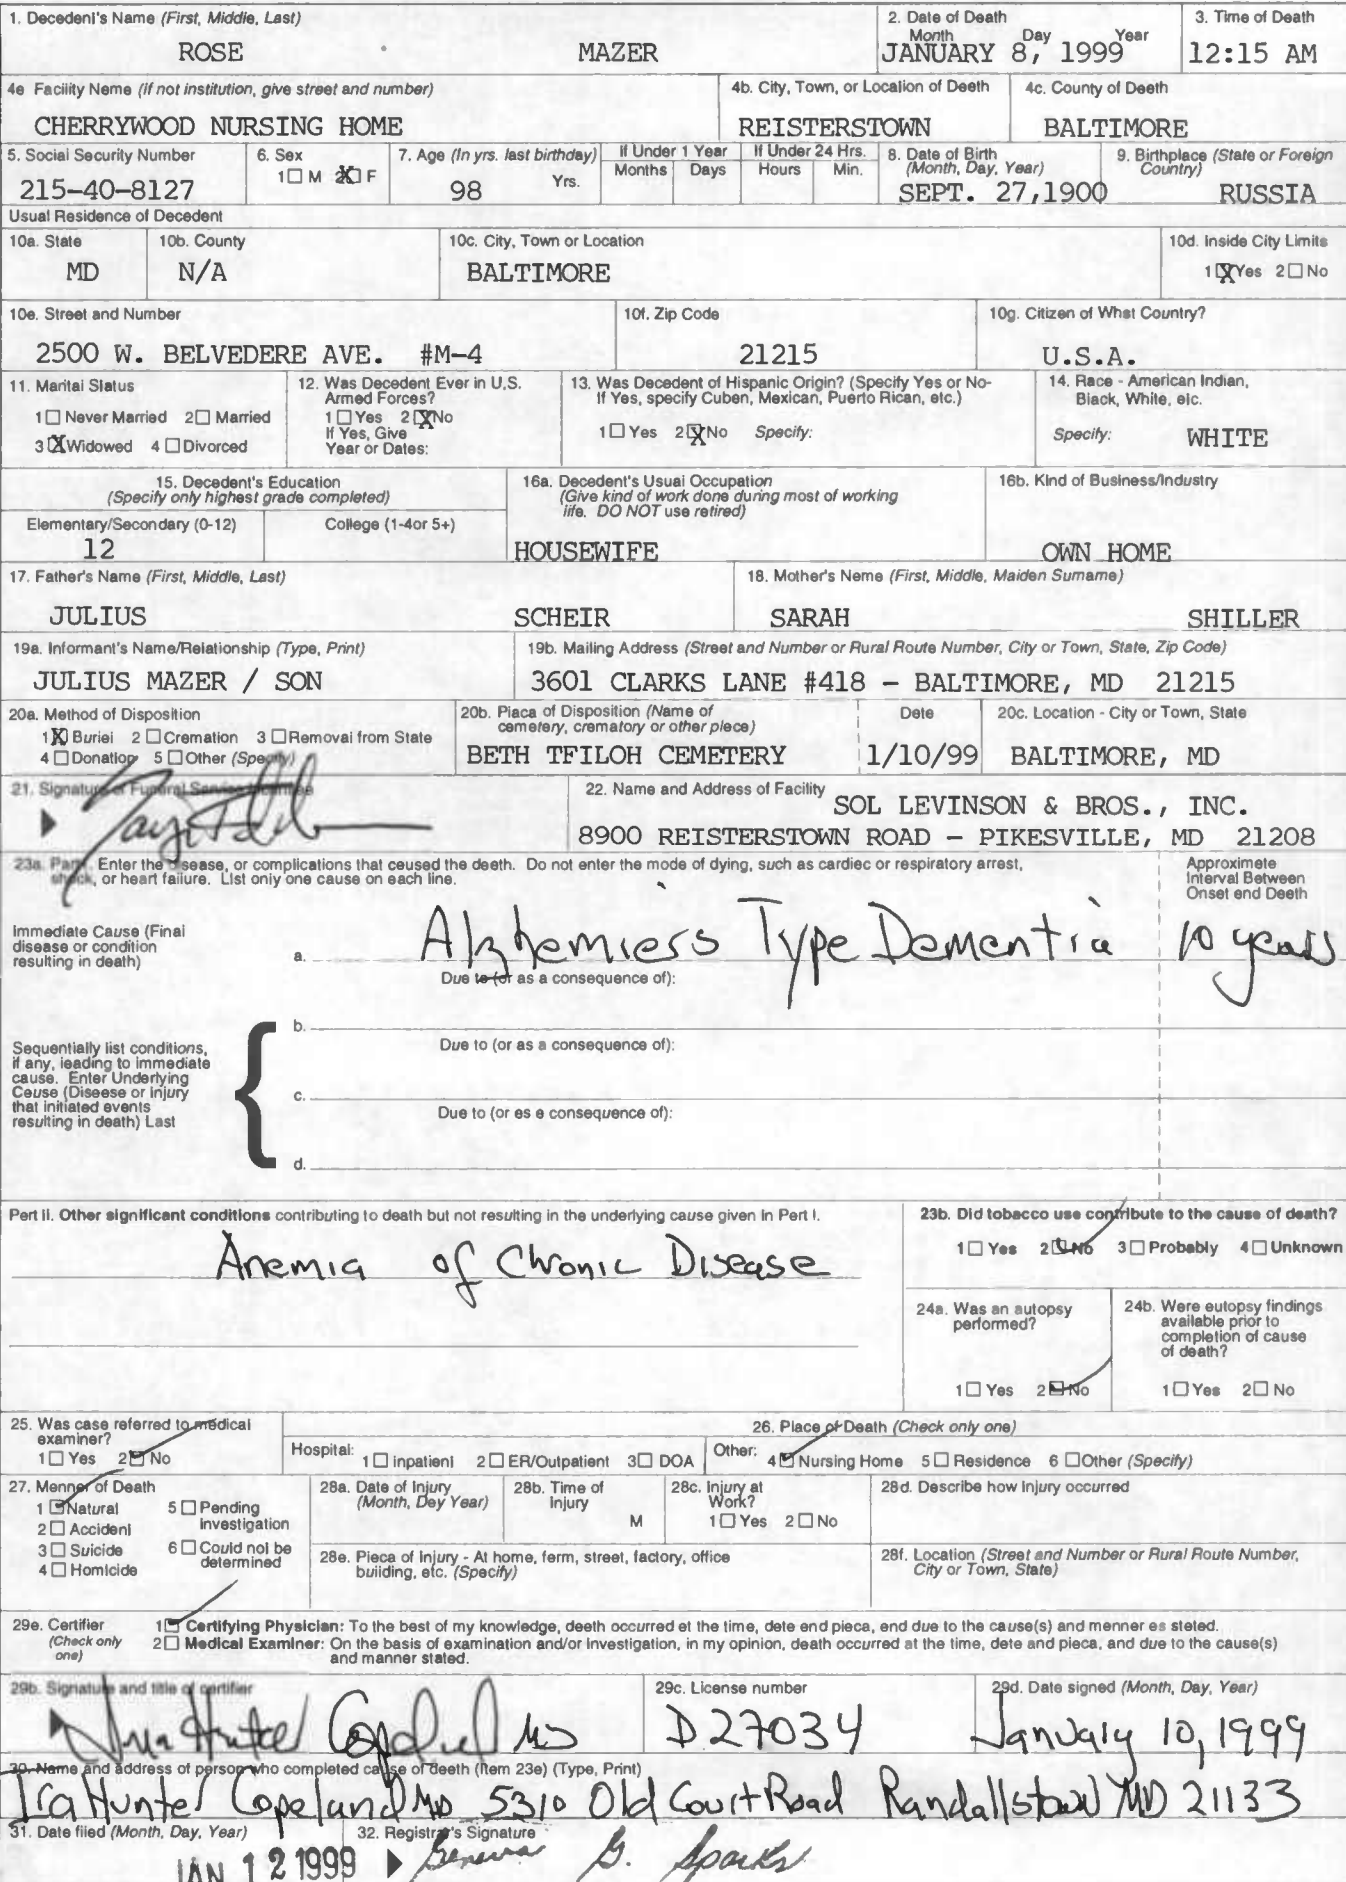 1. Decedent's Name (First, Middle, Last)
ROSE MAZER
2. Date of Death
Month Day Year
JANUARY 8, 1999
3. Time of Death
12:15 AM
4e Facility Name (If not institution, give street and number)
CHERRYWOOD NURSING HOME
4b. City, Town, or Location of Deeth
REISTERSTOWN
4c. County of Deeth
BALTIMORE
5. Social Security Number
215-40-8127
6. Sex
1☐ M 2☒ F
7. Age (In yrs. last birthday)
98 Yrs.
If Under 1 Year
Months Days
If Under 24 Hrs.
Hours Min.
8. Date of Birth
(Month, Day, Year)
SEPT. 27,1900
9. Birthplace (State or Foreign
Country)
RUSSIA
Usual Residence of Decedent
10a. State
MD
10b. County
N/A
10c. City, Town or Location
BALTIMORE
10d. Inside City Limits
1☒Yes 2☐ No
10e. Street and Number
2500 W. BELVEDERE AVE. #M-4
10f. Zip Code
21215
10g. Citizen of What Country?
U.S.A.
11. Marital Status
1☐ Never Married 2☐ Married
3☒Widowed 4☐ Divorced
12. Was Decedent Ever in U.S.
Armed Forces?
1☐ Yes 2☒No
If Yes, Give
Year or Dates:
13. Was Decedent of Hispanic Origin? (Specify Yes or No-
If Yes, specify Cuben, Mexican, Puerto Rican, etc.)
1☐ Yes 2☒No Specify:
14. Race - American Indian,
Black, White, etc.
Specify: WHITE
15. Decedent's Education
(Specify only highest grade completed)
Elementary/Secondary (0-12)
12
College (1-4or 5+)
16a. Decedent's Usual Occupation
(Give kind of work done during most of working
life. DO NOT use retired)
HOUSEWIFE
16b. Kind of Business/Industry
OWN HOME
17. Father's Name (First, Middle, Last)
JULIUS SCHEIR
18. Mother's Neme (First, Middle, Maiden Surname)
SARAH SHILLER
19a. Informant's Name/Relationship (Type, Print)
JULIUS MAZER / SON
19b. Mailing Address (Street and Number or Rural Route Number, City or Town, State, Zip Code)
3601 CLARKS LANE #418 - BALTIMORE, MD 21215
20a. Method of Disposition
1☒ Buriel 2☐ Cremation 3☐ Removal from State
4☐ Donation 5☐ Other (Specify)
20b. Place of Disposition (Name of
cemetery, crematory or other piece)
BETH TFILOH CEMETERY
Dete
1/10/99
20c. Location - City or Town, State
BALTIMORE, MD
21. Signature of Funeral Service Licensee
22. Name and Address of Facility
SOL LEVINSON & BROS., INC.
8900 REISTERSTOWN ROAD - PIKESVILLE, MD 21208
23a. Part I. Enter the disease, or complications that ceused the deeth. Do not enter the mode of dying, such as cardiec or respiratory arrest,
shock, or heart failure. List only one cause on each line.
Approximete
Interval Between
Onset end Deeth
Immediate Cause (Final
disease or condition
resulting in death)
a. Alzhemiers Type Dementia 10 years
Due to (or as a consequence of):
Sequentially list conditions,
if any, leading to immediate
cause. Enter Underlying
Ceuse (Diseese or injury
that initiated events
resulting in death) Last
b.
Due to (or as a consequence of):
c.
Due to (or es e consequence of):
d.
Pert II. Other significant conditions contributing to death but not resulting in the underlying cause given in Part I.
Anemia of Chronic Disease
23b. Did tobacco use contribute to the cause of death?
1☐ Yes 2☑No 3☐ Probably 4☐ Unknown
24a. Was an autopsy
performed?
1☐ Yes 2☑No
24b. Were eutopsy findings
available prior to
completion of cause
of death?
1☐ Yes 2☐ No
25. Was case referred to medical
examiner?
1☐ Yes 2☑ No
26. Place of Death (Check only one)
Hospital: 1☐ Inpatient 2☐ ER/Outpatient 3☐ DOA
Other: 4☑ Nursing Home 5☐ Residence 6☐Other (Specify)
27. Menner of Death
1☑Natural 5☐ Pending
investigation
2☐ Accident
3☐ Suicide 6☐ Could not be
determined
4☐ Homicide
28a. Date of Injury
(Month, Dey Year)
28b. Time of
Injury
M
28c. Injury at
Work?
1☐ Yes 2☐ No
28d. Describe how Injury occurred
28e. Pieca of Injury - At home, ferm, street, factory, office
building, etc. (Specify)
28f. Location (Street and Number or Rural Route Number,
City or Town, State)
29e. Certifier
(Check only
one)
1☑ Certifying Physician: To the best of my knowledge, deeth occurred et the time, dete end pieca, end due to the cause(s) and menner es steted.
2☐ Medical Examiner: On the basis of examination and/or investigation, in my opinion, death occurred at the time, dete and pieca, and due to the cause(s)
and manner stated.
29b. Signature and title of certifier
Ira Hunter Copeland MD
29c. License number
D27034
29d. Date signed (Month, Day, Year)
January 10, 1999
30. Name and address of person who completed cause of deeth (Item 23e) (Type, Print)
Ira Hunter Copeland MD 5310 Old Court Road Randallstown MD 21133
31. Date filed (Month, Day, Year)
JAN 12 1999
32. Registrar's Signature
Geneva G. Sparks